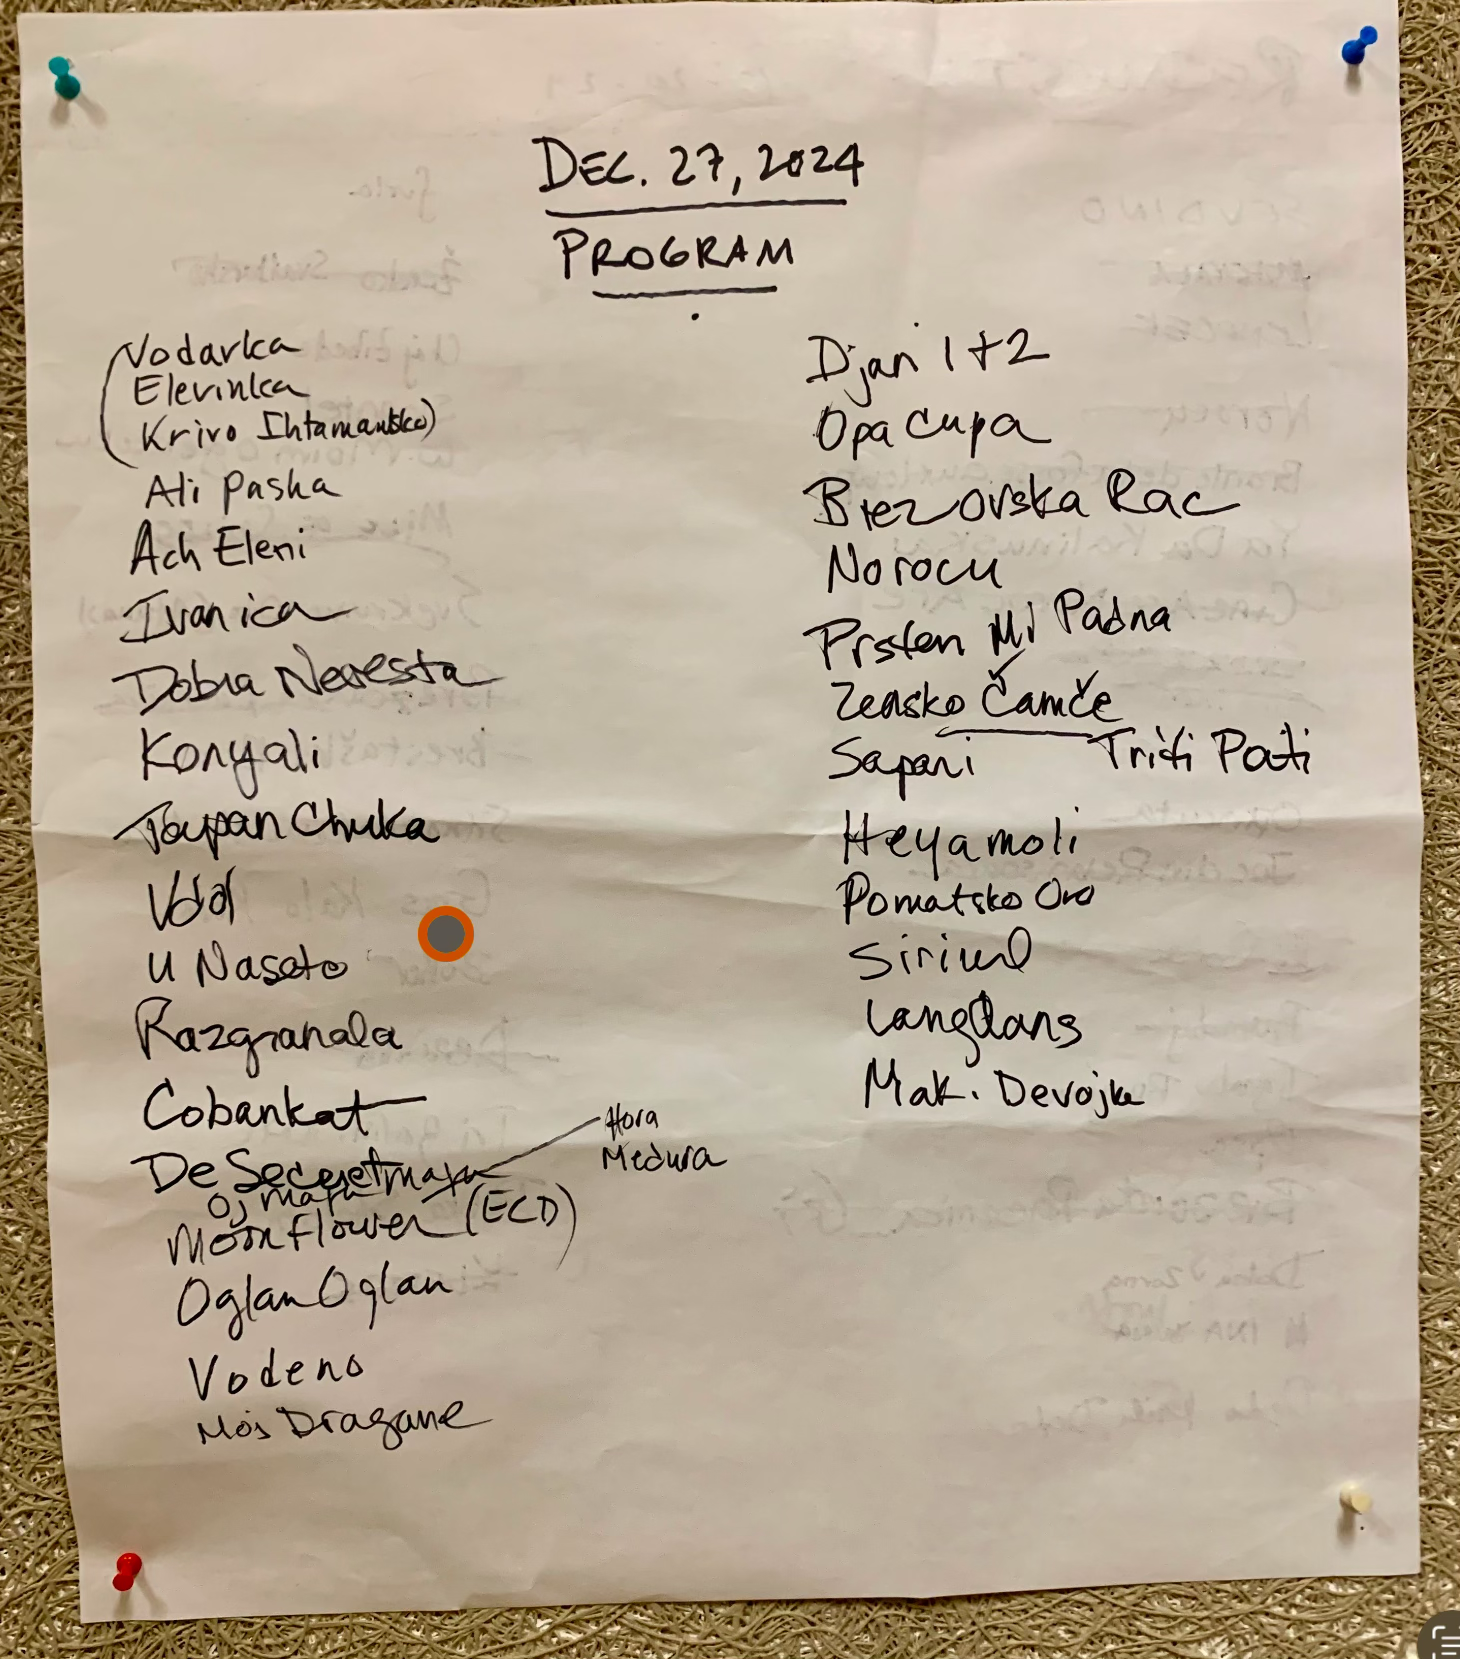 DEC. 27, 2024
PROGRAM
(Vodarka
Elerinka
Krivo Ihtamansko)
Ali Pasha
Ach Eleni
Ivanica
Dobra Nevesta
Konyali
Taypan Chuka
Vdol
U Naseto
Razgranala
Cobankat
De Secerетmaja
Hora
Medura
Oj Maja
Moonflower (ECD)
Oglan Oglan
Vodeno
Moj Dragane
Djan 1+2
Opa Cupa
Brezovska Rac
Norocu
Prsten Mi Padna
Zensko Čamče
Sapani Triti Pati
Heyamoli
Pomatsko Oro
Sirimd
Langdans
Mak. Devojke